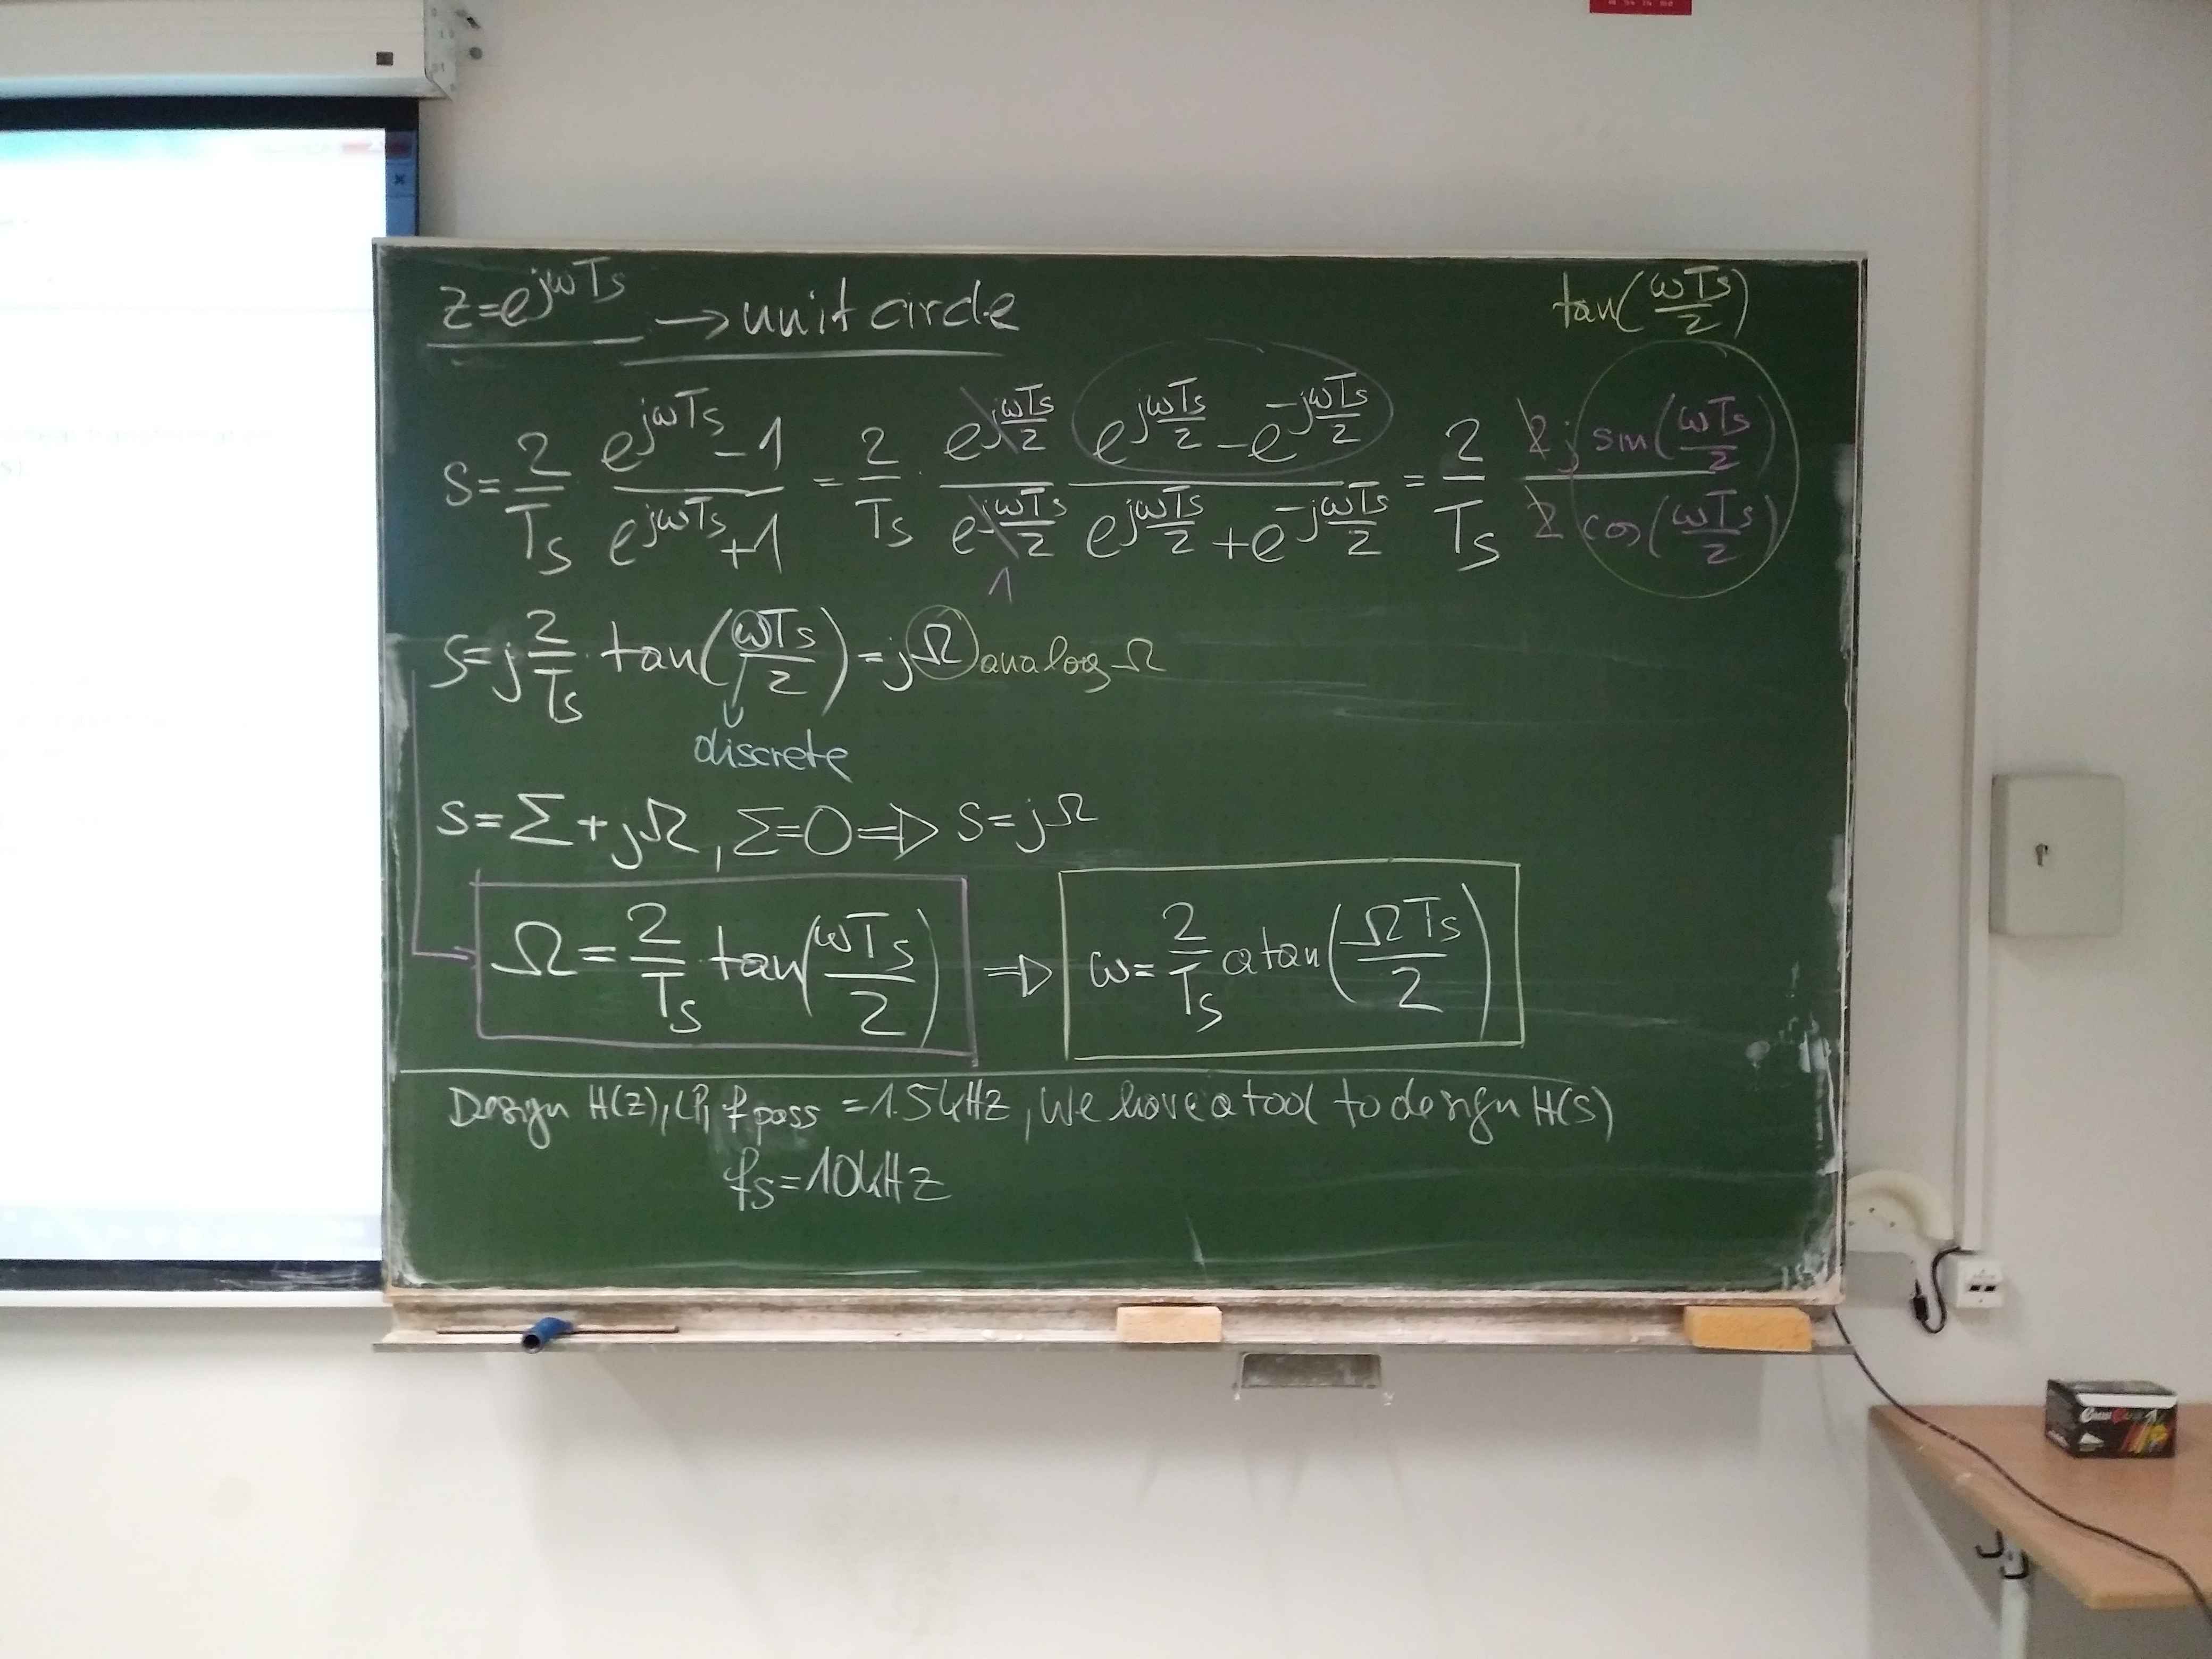 z=e^{jωTs} → unit circle
tan(ωTs/2)
S = 2/Ts · (e^{jωTs} - 1)/(e^{jωTs} + 1) = 2/Ts · e^{jωTs/2}/e^{jωTs/2} · (e^{jωTs/2} - e^{-jωTs/2})/(e^{jωTs/2} + e^{-jωTs/2}) = 2/Ts · 2j sin(ωTs/2)/2 cos(ωTs/2)
1
S = j 2/Ts · tan(ωTs/2) = jΩ analog Ω
discrete
S = Σ + jΩ, Σ = 0 => S = jΩ
Ω = 2/Ts · tan(ωTs/2) => ω = 2/Ts atan(ΩTs/2)
Design H(z), LP, f pass = 1.5kHz, We have a tool to design H(s)
fs = 10kHz